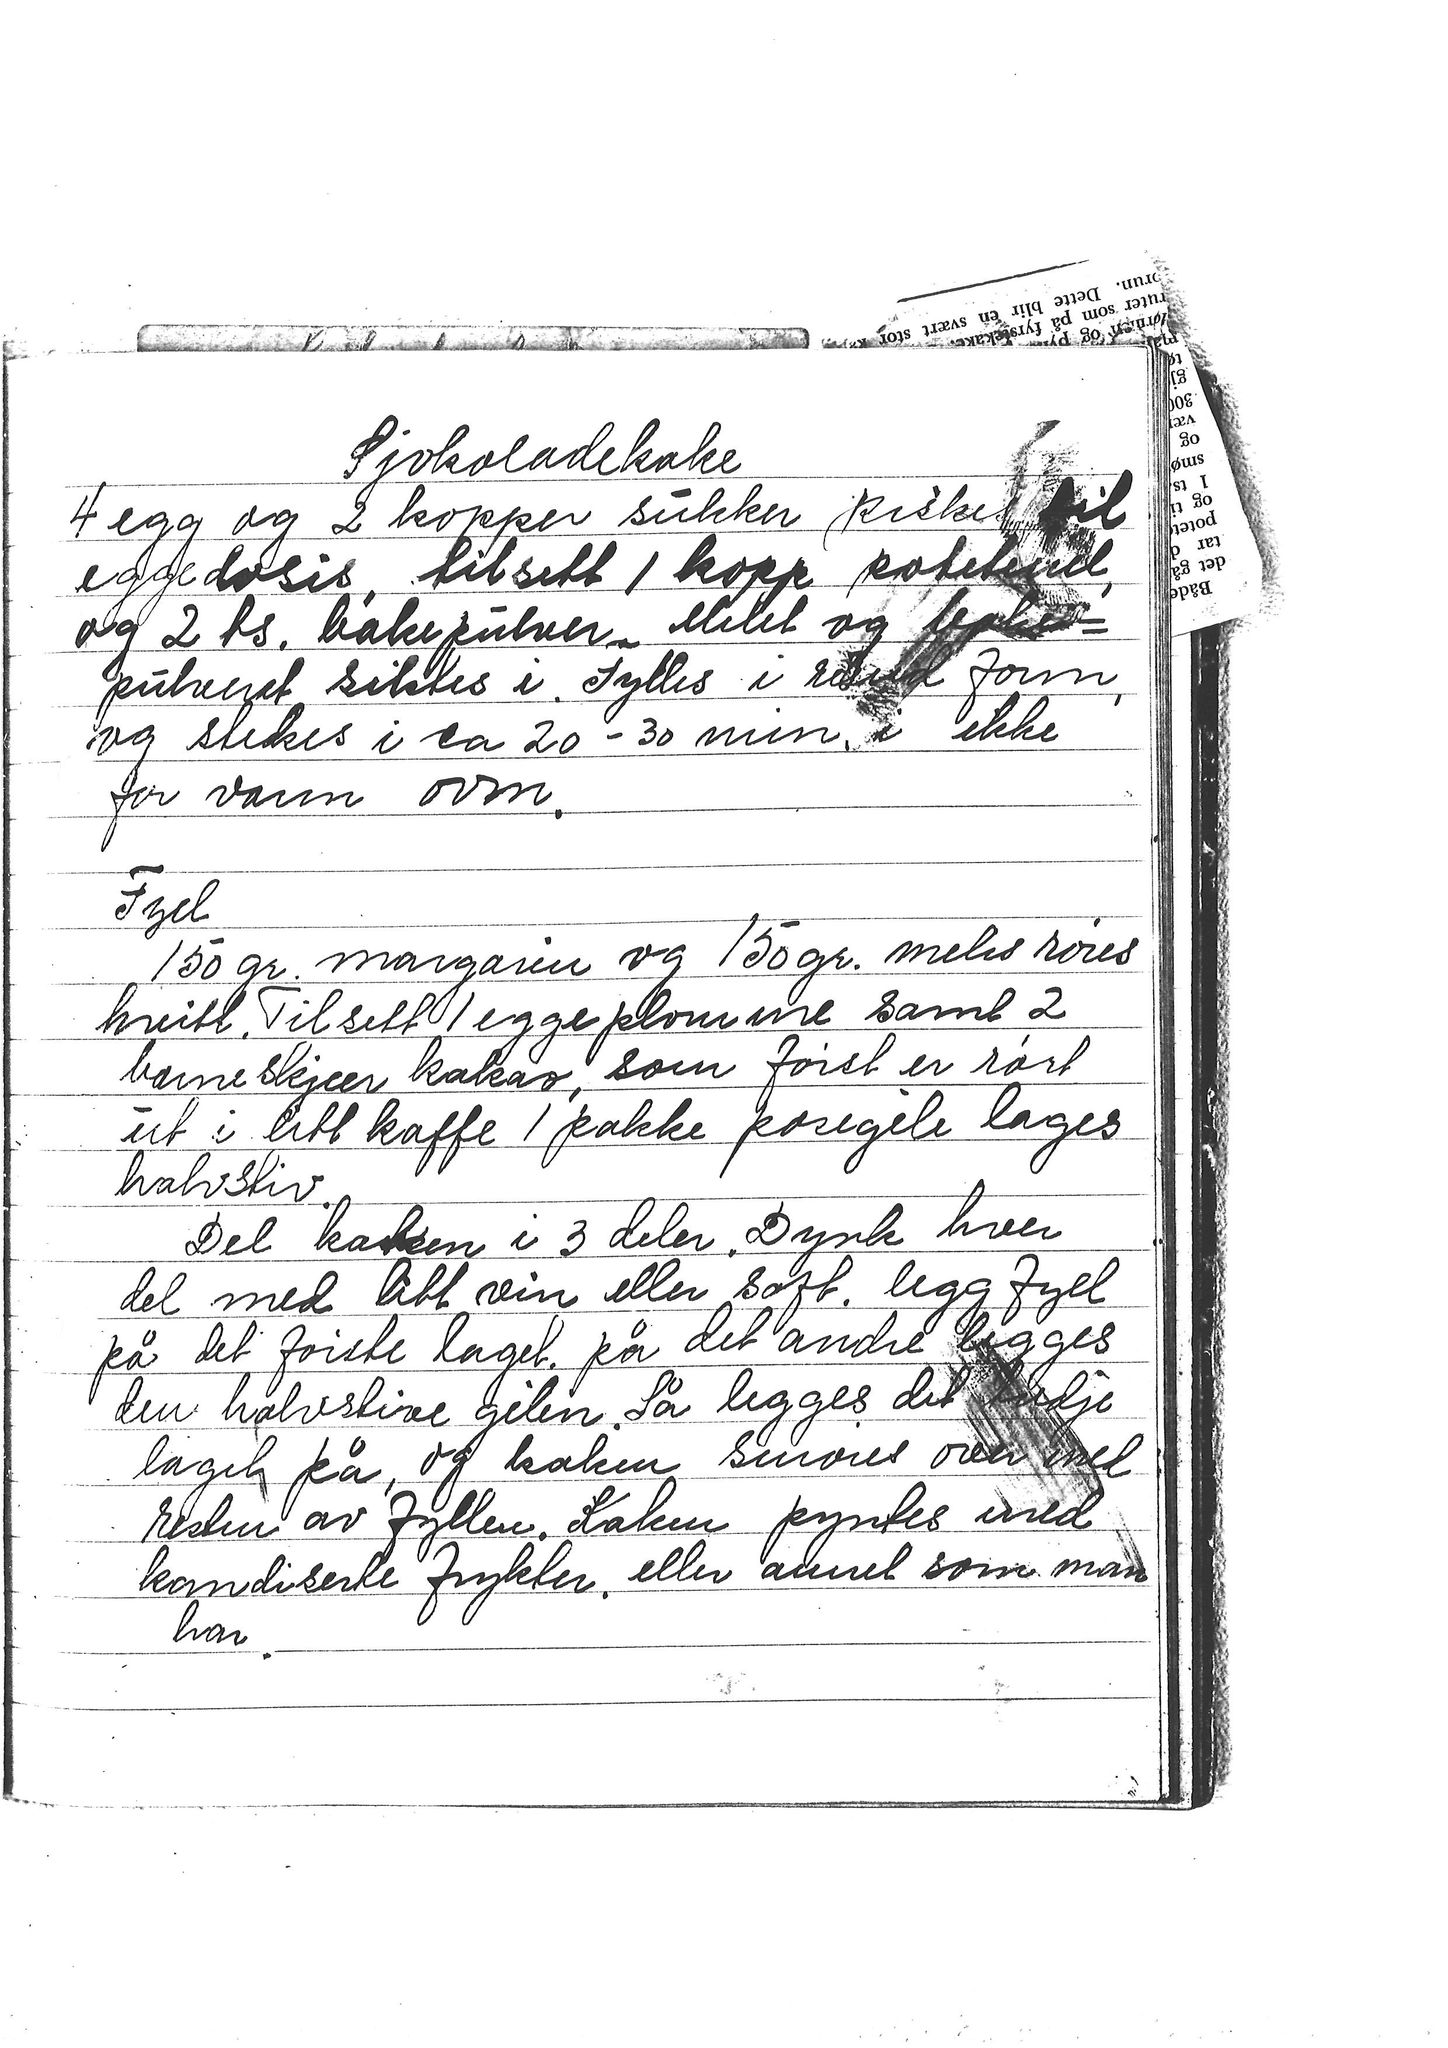 Sjokoladekake
4 egg og 2 kopper sukker piskes til
eggedosis, tilsett 1 kopp potetmel,
og 2 ts. bakepulver. Melet og bake=
pulveret siktes i. Fylles i rund form,
og stekes i ca 20-30 min. i ikke
for varm ovn.
Fyel
150 gr. margarin og 150 gr. melis røres
hvitt. Tilsett 1 eggeplomme samt 2
barneskjeer kakao, som først er rørt
ut i litt kaffe 1 pakke posegele lages
halvstiv.
Del kaken i 3 deler. Dynk hver
del med litt vin eller saft. legg fyel
på det første laget. på det andre legges
den halvstive gelen. Så legges det tredje
laget på, og kaken smøres over med
resten av fyllen. Kaken pyntes med
kandiserte frykter. eller annet som man
har.
orun. Dette blir en svært stor
ruter som på fyrstekake.
og
gj
300
vær
og
smø
1 ts
og ti
potet
tar d
det gå
Både